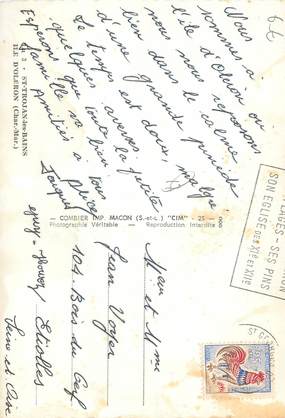 Nous
sommes à
l'île d'Oléron où
nous nous reposons
bien dans le calme
d'une grande pinède.
Le temps est doux, malgré
quelques averses. Petite
pluie toute fine
Espérons que va durer
Jacques
Amitiés à tous
2 - ST-TROJAN-les-BAINS
ILE D'OLERON (Char.-Mar.)
COMBIER IMP. MACON (S.-et-L.) "CIM"
Photographie Véritable - Reproduction Interdite
PLAGES - SES PINS
SON EGLISE DES XIe ET XIIe
Mr et Mme
Jean Voyer
104 Bois du Cerf
Etiolles
Seine et Oise